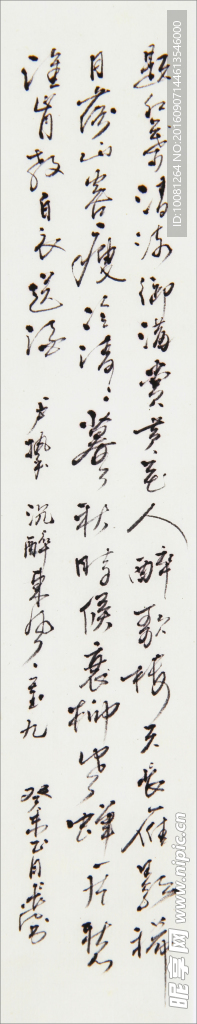 題紅葉清流御溝賞黃花人醉歌樓天長雁影稀
月落山容瘦冷清々暮秋時候衰柳寒蟬一片愁
誰肯教白衣送酒 卢摯 沉醉東風、重九 癸未正月
ID:10081264 NO:20160907144613546000
昵享网 www.nipic.cn